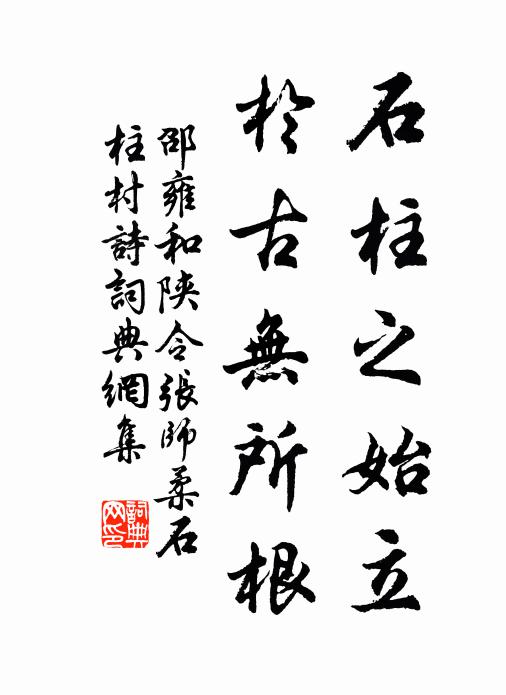 石柱之始立
於古無所根
邵雍和陝令張師柔石
柱村詩詞典網集
詞典网印